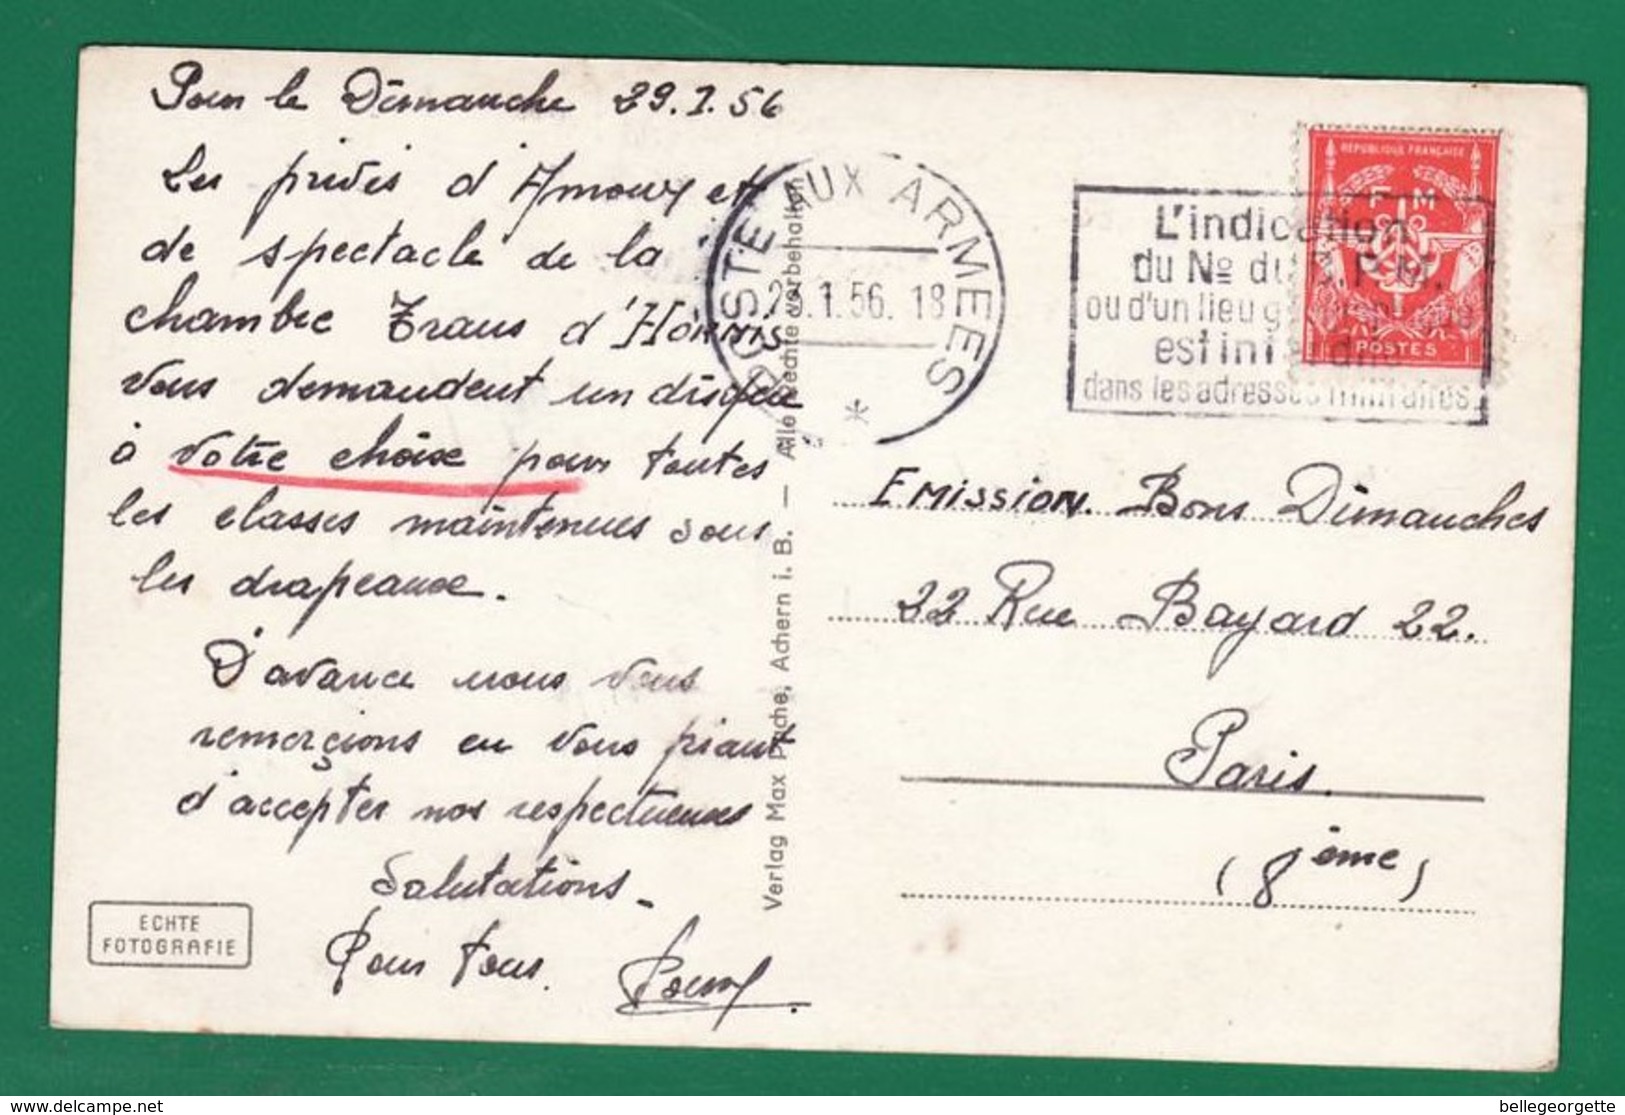 Pour le Dimanche 29.1.56
Les privés d'Amour et
de spectacle de la
chambre Trans d'
Vous demandent un disque
à votre choix pour toutes
les classes maintenues sous
les drapeaux.
D'avance nous vous
remerçions en vous priant
d'accepter nos respectueuses
Salutations.
Pour tous.
ECHTE
FOTOGRAFIE
Verlag Max Pache, Achern i. B. — Alle Rechte vorbehalten
POSTE AUX ARMEES
1.56. 18
*
L'indication
du No du B.P.M.
ou d'un lieu géographique
est interdite
dans les adresses militaires
REPUBLIQUE FRANÇAISE
F M
POSTES
EMISSION. Bons Dimanches
22 Rue Bayard 22.
Paris.
(8ème)
delcampe.net
bellegeorgette